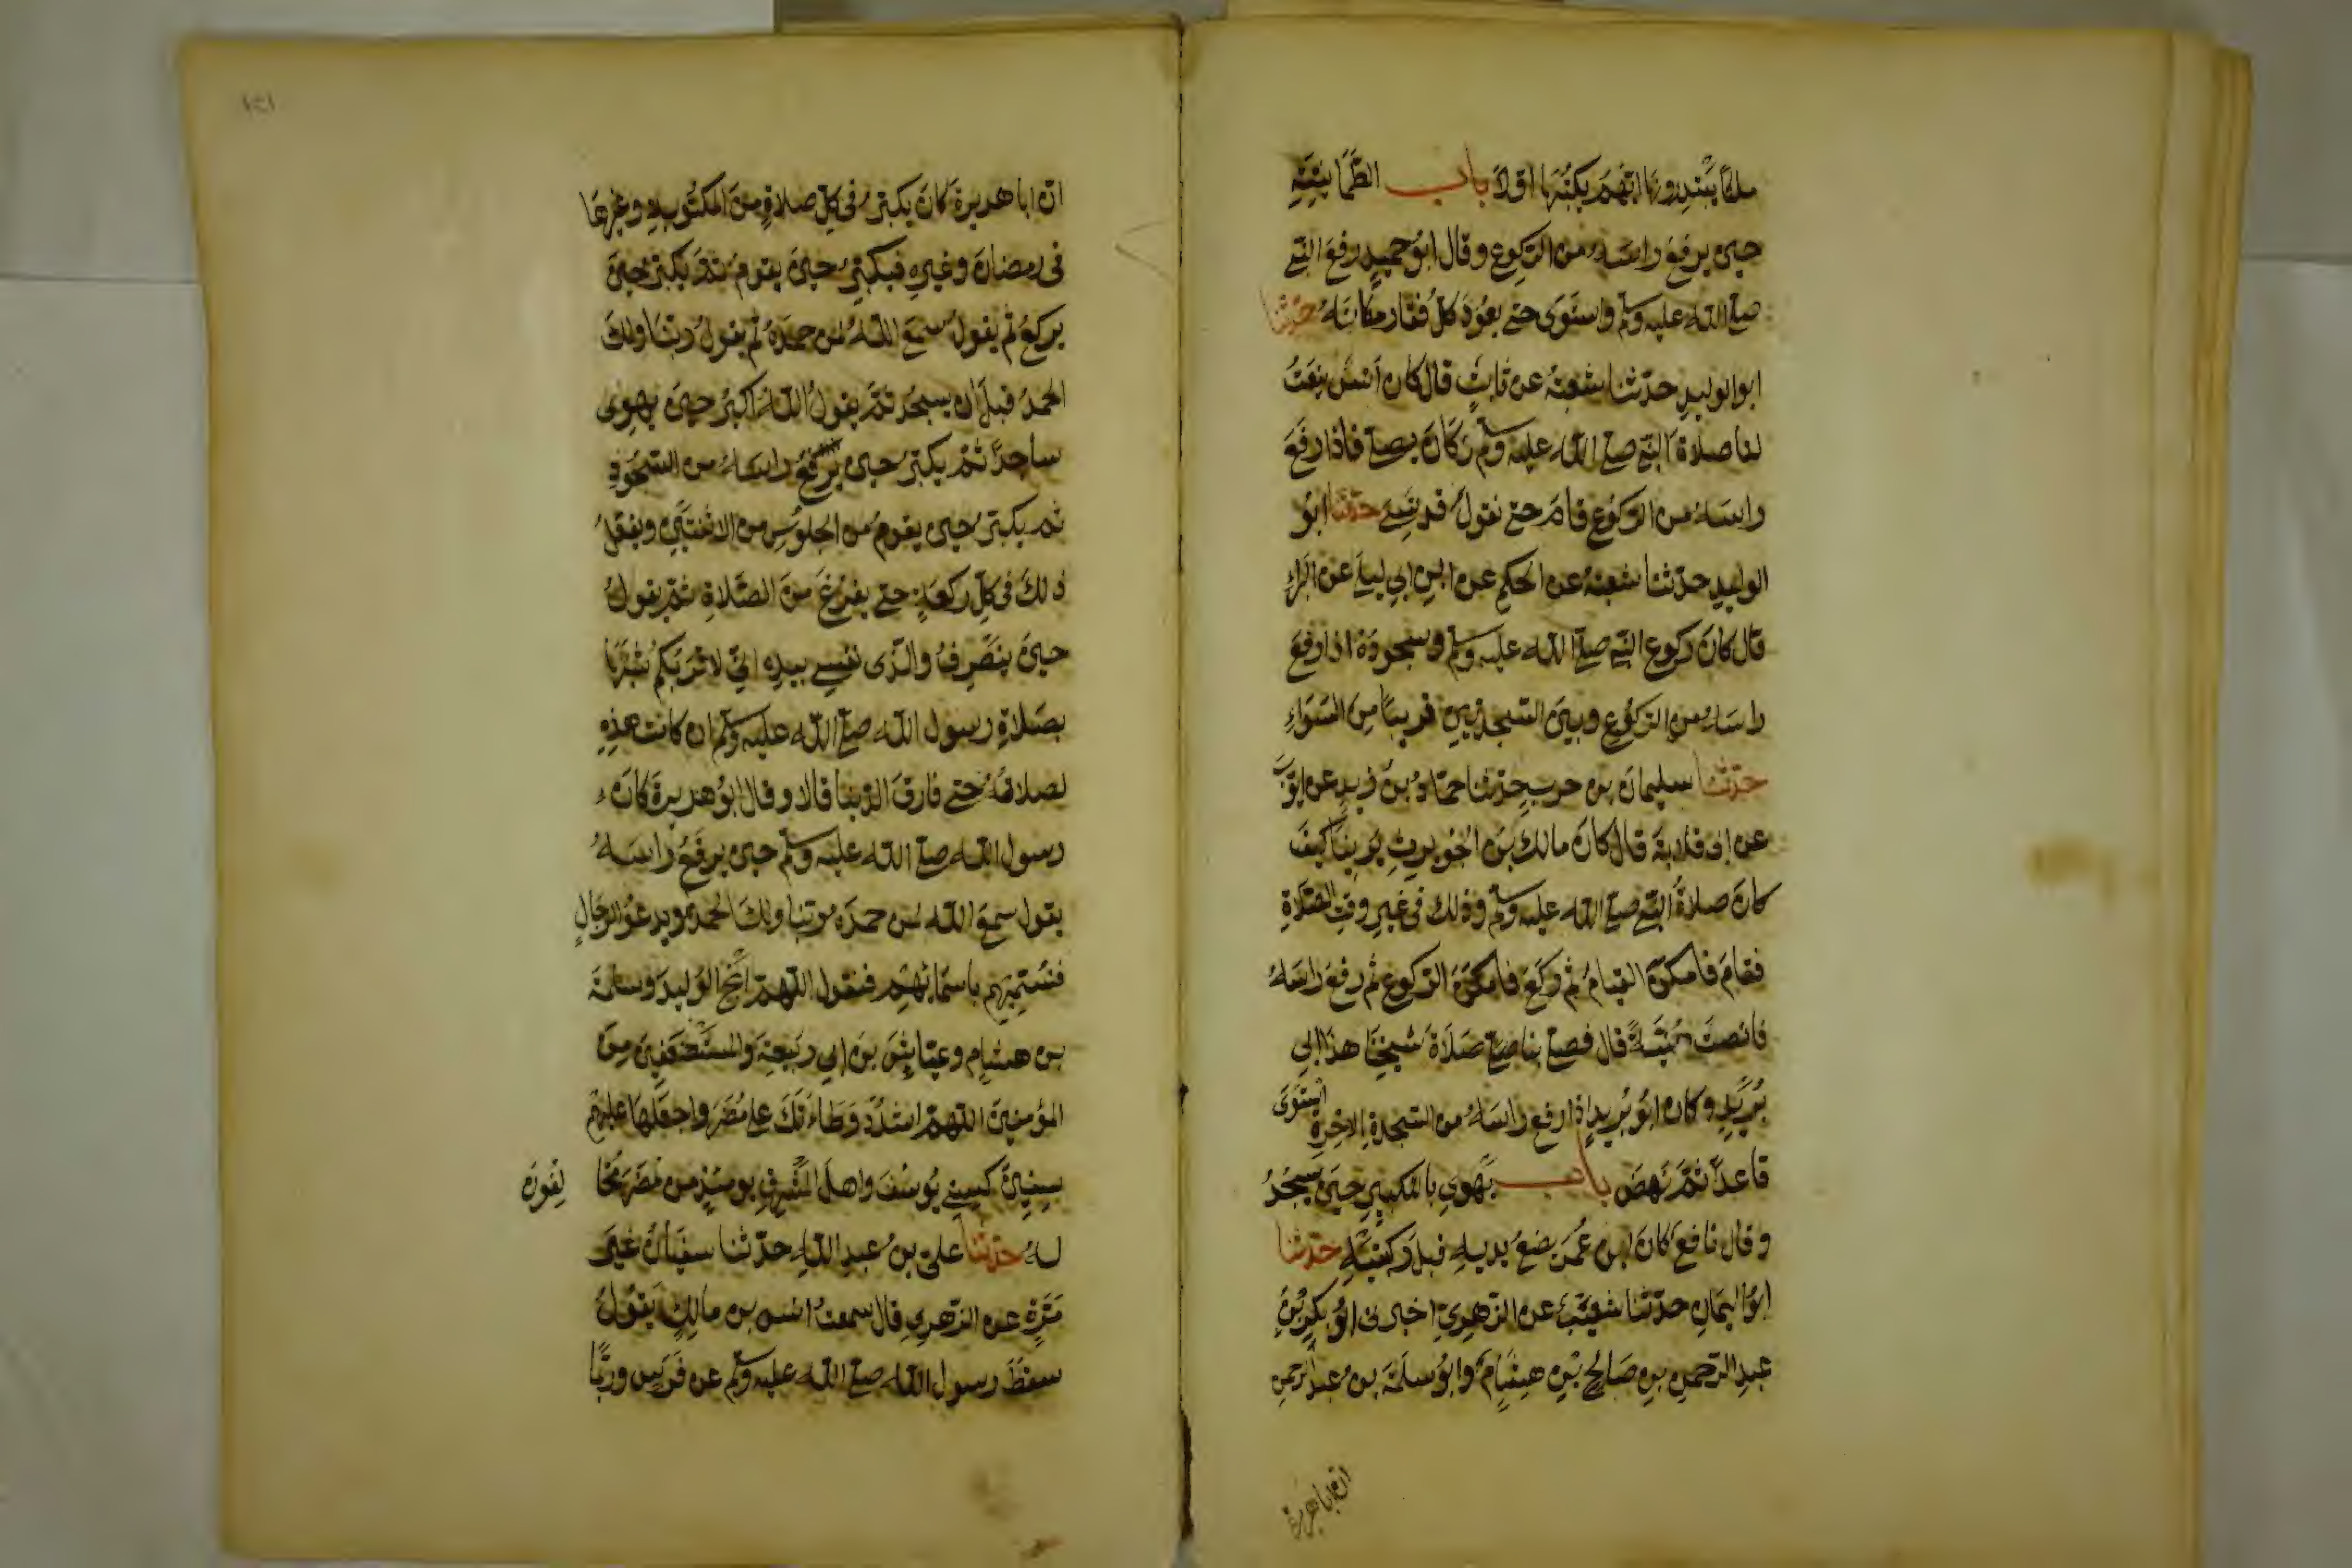 ملكا يبتدرونها ايهم يكتبها اولا باب الطمانينة
حين يرفع راسه من الركوع وقال ابو حميد رفع النبي
صلى الله عليه وسلم واستوى حتى يعود كل فقار مكانه حدثنا
ابو الوليد حدثنا شعبة عن ثابت قال كان انس ينعت
لنا صلاة النبي صلى الله عليه وسلم وكان يصلي فاذا رفع
راسه من الركوع قام حتى نقول قد نسي حدثنا ابو
الوليد حدثنا شعبة عن الحكم عن ابن ابي ليلى عن البراء
قال كان ركوع النبي صلى الله عليه وسلم وسجوده اذا رفع
راسه من الركوع وبين السجدتين قريبا من السواء
حدثنا سليمان بن حرب حدثنا حماد بن زيد عن ايوب
عن ابي قلابة قال كان مالك بن الحويرث يرينا كيف
كان صلاة النبي صلى الله عليه وسلم وذلك في غير وقت الصلاة
فقام فامكن القيام ثم ركع فامكن الركوع ثم رفع راسه
فانصت هنية قال فصلى بنا صلاة شيخنا هذا ابي
بريد وكان ابو بريد اذا رفع راسه من السجدة الاخرة استوى
قاعدا ثم نهض باب يهوي بالتكبير حين يسجد
وقال نافع كان ابن عمر يضع يديه قبل ركبتيه حدثنا
ابو اليمان حدثنا شعيب عن الزهري اخبرني ابو بكر بن
عبد الرحمن بن صالح بن هشام وابو سلمة بن عبد الرحمن
ان ابا هريرة
ان ابا هريرة كان يكبر في كل صلاة من المكتوبة وغيرها
في رمضان وغيره فيكبر حين يقوم ثم يكبر حين
يركع ثم يقول سمع الله لمن حمده ثم يقول ربنا ولك
الحمد قبل ان يسجد ثم يقول الله اكبر حين يهوي
ساجدا ثم يكبر حين يرفع راسه من السجود
ثم يكبر حين يقوم من الجلوس من الاثنتين ويفعل
ذلك في كل ركعة حتى يفرغ من الصلاة ثم يقول
حين ينصرف والذي نفسي بيده اني لاقربكم شبها
بصلاة رسول الله صلى الله عليه وسلم ان كانت هذه
لصلاته حتى فارق الدنيا قالا وقال ابو هريرة كان
رسول الله صلى الله عليه وسلم حين يرفع راسه
يقول سمع الله لمن حمده ربنا ولك الحمد ويدعو لرجال
فيسميهم باسمائهم فيقول اللهم انج الوليد وسلمة
بن هشام وعياش بن ابي ربيعة والمستضعفين من
المؤمنين اللهم اشدد وطاتك على مضر واجعلها عليهم
سنين كسني يوسف واهل المشرق يومئذ من مضر مخالفون
له حدثنا علي بن عبد الله حدثنا سفيان غير
مرة عن الزهري قال سمعت انس بن مالك يقول
سقط رسول الله صلى الله عليه وسلم عن فرس وربما